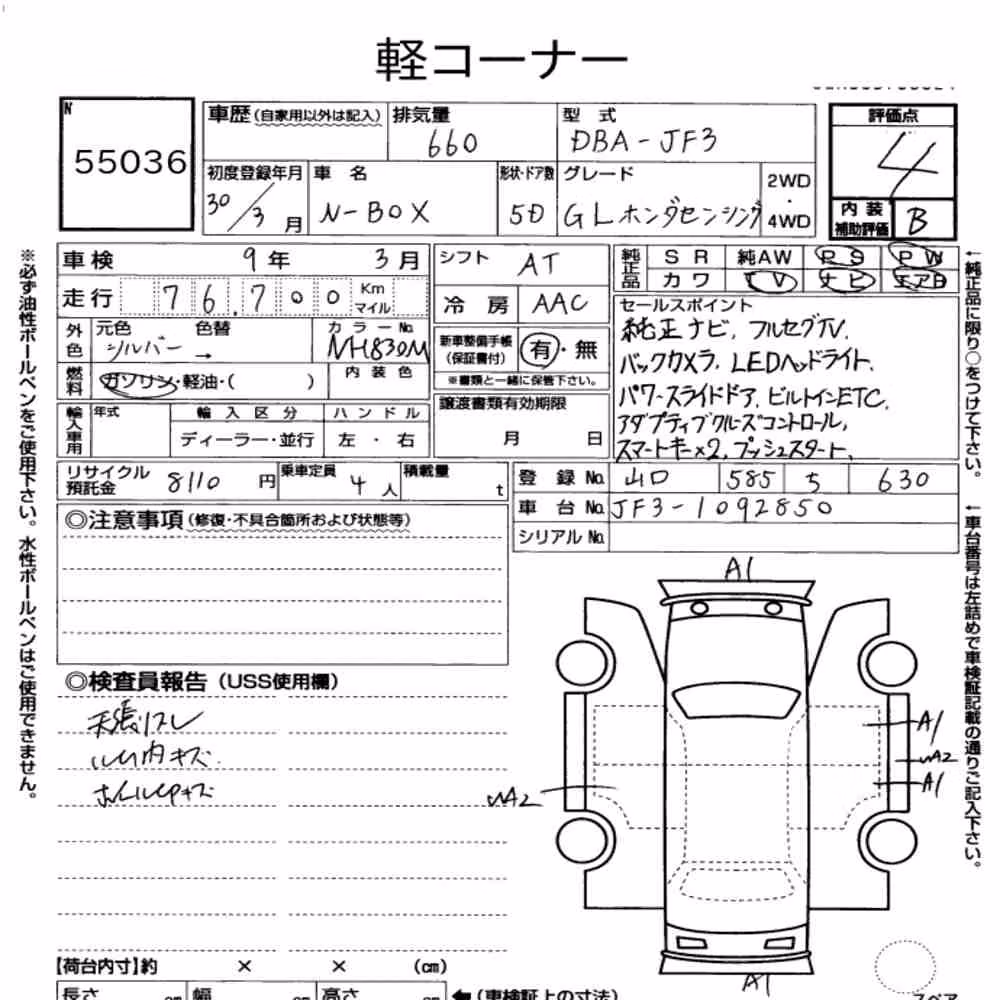 軽コーナー
N
55036
車歴 (自家用以外は記入)
排気量
660
型 式
DBA-JF3
評価点
4
初度登録年月
30/3月
車 名
N-BOX
形状・ドア数
5D
グレード
GLホンダセンシング
2WD
・
4WD
内 装
補助評価
B
車検 9年 3月
シフト AT
純正品
SR 純AW PS PW
カワ TV ナビ エアB
走行 76,700 Km
マイル
冷 房 AAC
外色
元色
シルバー
色替
→
カラーNo.
NH830M
新車整備手帳
(保証書付)
有・無
※書類と一緒に保管下さい。
燃料
ガソリン・軽油・( )
内 装 色
輸入車用
年式
輸 入 区 分
ディーラー・並行
ハ ン ド ル
左 ・ 右
譲渡書類有効期限
月 日
セールスポイント
純正ナビ、フルセグTV、
バックカメラ、LEDヘッドライト、
パワースライドドア、ビルトインETC、
アダプティブクルーズコントロール、
スマートキー×2、プッシュスタート、
リサイクル
預託金
8110 円
乗車定員
4 人
積載量
t
登 録 No. 山口 585 う 630
車 台 No. JF3-1092850
シリアル No.
◎注意事項 (修復・不具合箇所および状態等)
◎検査員報告 (USS使用欄)
天張リスレ
ルーム内キズ
ホイールキズ
A1
A1
A2
A1
A2
A1
【荷台内寸】約 × × (cm)
長さ cm 幅 cm 高さ cm
(車検証上の寸法)
スペア
※必ず油性ボールペンをご使用下さい。水性ボールペンはご使用できません。
←純正品に限り○をつけて下さい。
←車台番号は左詰めで車検証記載の通りご記入下さい。